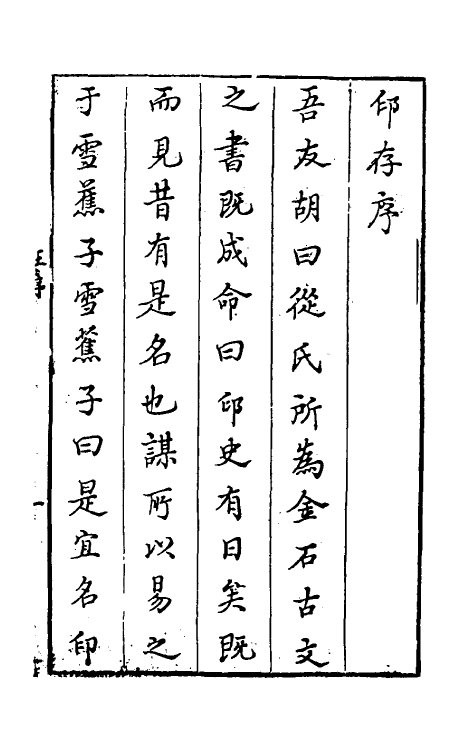 印存序
吾友胡曰從氏所為金石古文
之書既成命曰印史有日矣既
而見昔有是名也謀所以易之
于雪蕉子雪蕉子曰是宜名印